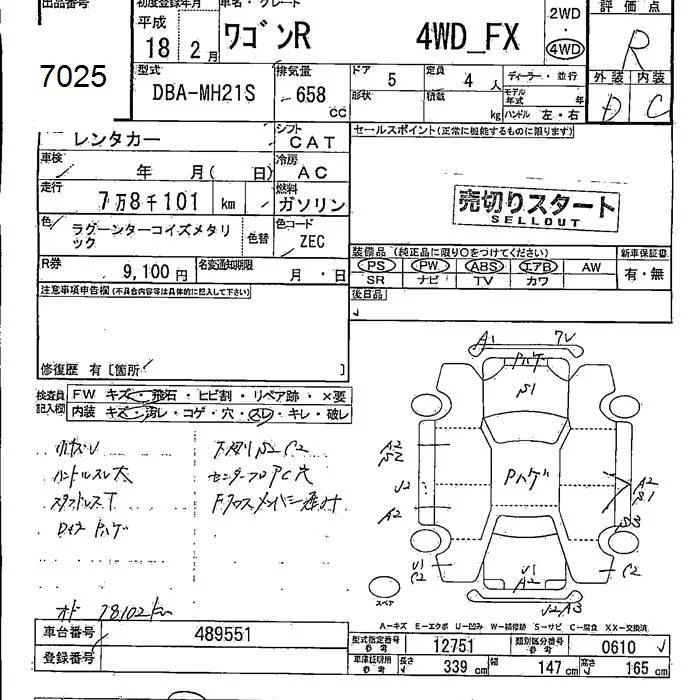 出品番号
7025
初度登録年月
平成
18 2 月
車名・グレード
ワゴンR 4WD_FX
2WD
4WD
評価点
R
型式
DBA-MH21S
排気量
658
CC
ドア
5
定員
4 人
形状
積載
kg
ディーラー・並行
モデル
年式
年
ハンドル 左・右
外装 内装
D C
レンタカー
シフト
CAT
車検
年 月( 日)
冷房
AC
走行
7万8千101 km
燃料
ガソリン
色
ラグーンターコイズメタリ
ック
色替
色コード
ZEC
R券
9,100 円
名変通知期限
月 日
セールスポイント(正常に機能するものに限ります)
売切りスタート
SELLOUT
装備品 (純正品に限り○をつけてください)
新車保証書
PS PW ABS エアB AW
SR ナビ TV カワ
有・無
後日品
注意事項申告欄(不具合内容等は具体的に記入して下さい)
修復歴 有 [箇所 ]
検査員
記入欄
FW キズ・飛石・ヒビ割・リペア跡・×要
内装 キズ・汚レ・コゲ・穴・スレ・キレ・破レ
ハンドルスレ大
下廻りS2 C2
オド 78102km
A1 7V
Pハゲ
S1
A2
S2
Pハゲ
U2
A2
A2
S1
S3
U1
C2
U1
A2
C2
U2 A3
スペア
A-キズ E-エクボ U-凹み W-補修跡 S-サビ C-腐食 XX-交換済
車台番号
489551
登録番号
型式指定番号
参考
12751
類別区分番号
参考
0610
車庫証明用
参考
長さ
339 cm
幅
147 cm
高さ
165 cm